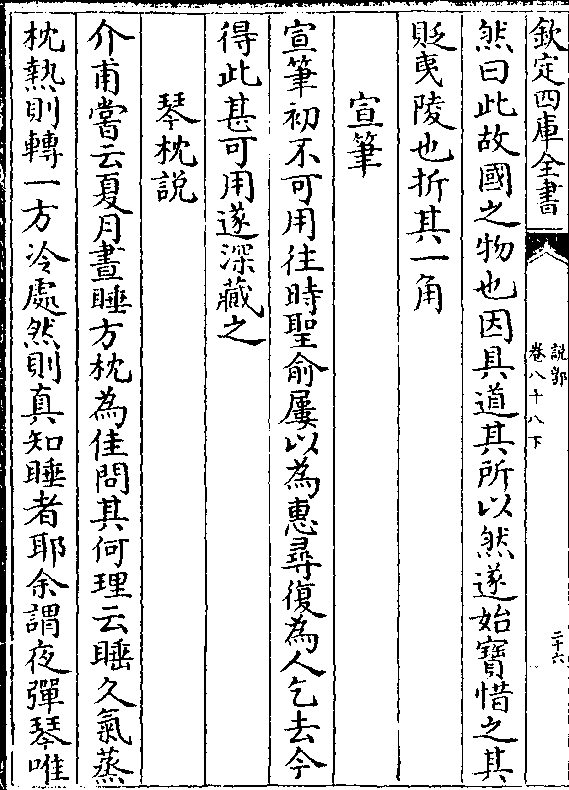 欽定四庫全書
說郛
卷八十八下
三十六
然曰此故國之物也因具道其所以然遂始寶惜之其
貶夷陵也折其一角
宣筆
宣筆初不可用往時聖俞屢以為惠尋復為人乞去今
得此甚可用遂深藏之
琴枕說
介甫嘗云夏月晝睡方枕為佳問其何理云睡久氣蒸
枕熱則轉一方冷處然則真知睡者耶余謂夜彈琴唯